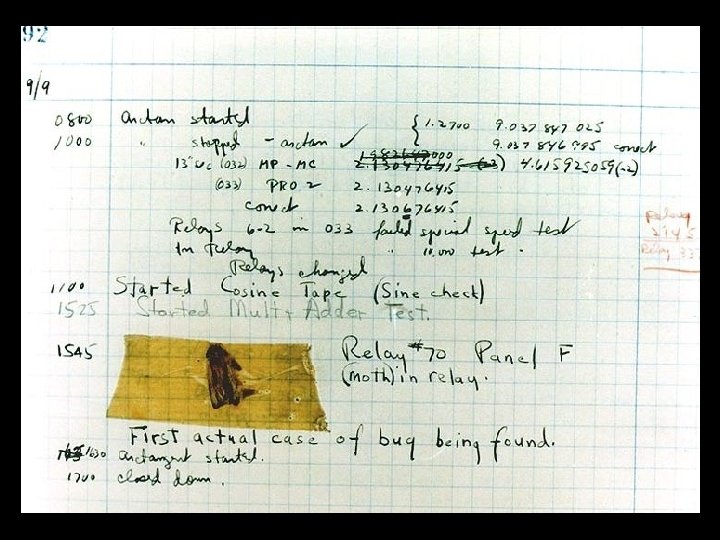 92
9/9
0800 arctan started { 1.2700 9.037 847 025
1000 " stopped - arctan ✓ 9.037 846 995 correct
13"uc (032) MP - MC 2.130476415 4.615925059(-2)
(033) PRO 2 2.130476415
correct 2.130676415
Relays 6-2 in 033 failed special speed test
In Relay " 10.000 test .
Relays changed
1100 Started Cosine Tape (Sine check)
1525 Started Mult + Adder Test.
1545 Relay #70 Panel F
(moth) in relay.
First actual case of bug being found.
1630 arctangent started.
1700 closed down .
Relay
2145
Relay 337